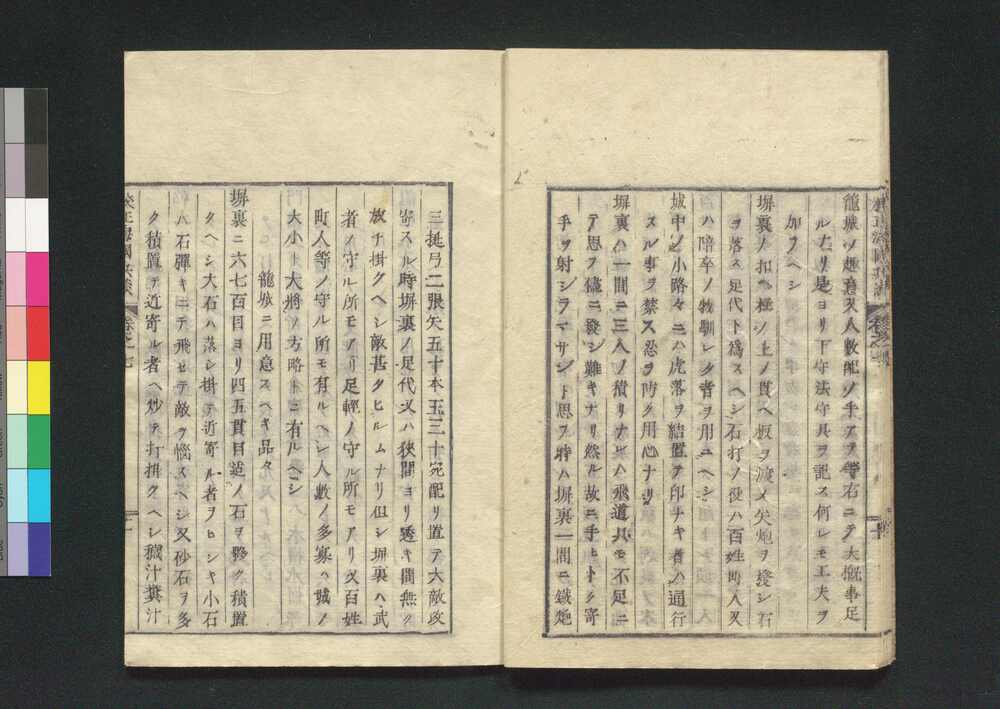 籠城ノ趣意又人數配ノ手アテ等右ニテ大概事足
ルナリ是ヨリ下守法守具ヲ記ス何レモ工夫ヲ
加フヘシ
塀裏ノ扣ヘ柱ノ上ノ貫ヘ板ヲ渡メ矢炮ヲ發シ石
ヲ落ス足代ト爲スヘシ石打ノ役ハ百姓町人又
ハ陪卒ノ物馴レタ者ヲ用ユヘシ
城中ノ小路々ニハ虎落ヲ結置テ印ナキ者ハ通行
スル事ヲ禁ス忍ヲ防ク用心ナリ
塀裏ハ一間ニ三人ノ積リナレハ飛道具モ不足ニ
テ思フ儘ニ發シ難キナリ然ル故ニ手ヒトク寄
手ヲ射シラマサント思フ時ハ塀裏一間ニ鐵炮
三挺弓二張矢五十本玉三十宛配リ置テ大敵攻
寄スル時塀裏ノ足代又ハ狹間ヨリ透キ間無ク
放チ掛クヘシ敵甚タヒルムナリ但シ塀裏ヘ武
者ノ守ル所モアリ足輕ノ守ル所モアリ又百姓
町人等ノ守ル所モ有ルヘシ人數ノ多寡ハ城ノ
大小ト大將ノ方略トニ有ルヘシ
籠城ニ用意スヘキ品々
塀裏ニ六七百目ヨリ四五貫目迄ノ石ヲ夥ク積置
クヘシ大石ハ落シ掛テ近寄ル者ヲヒシキ小石
ハ石彈キニテ飛セテ敵ヲ惱スヘシ又砂石ヲ多
ク積置テ近寄ル者ヘ炒テ打掛クヘシ穢汁糞汁